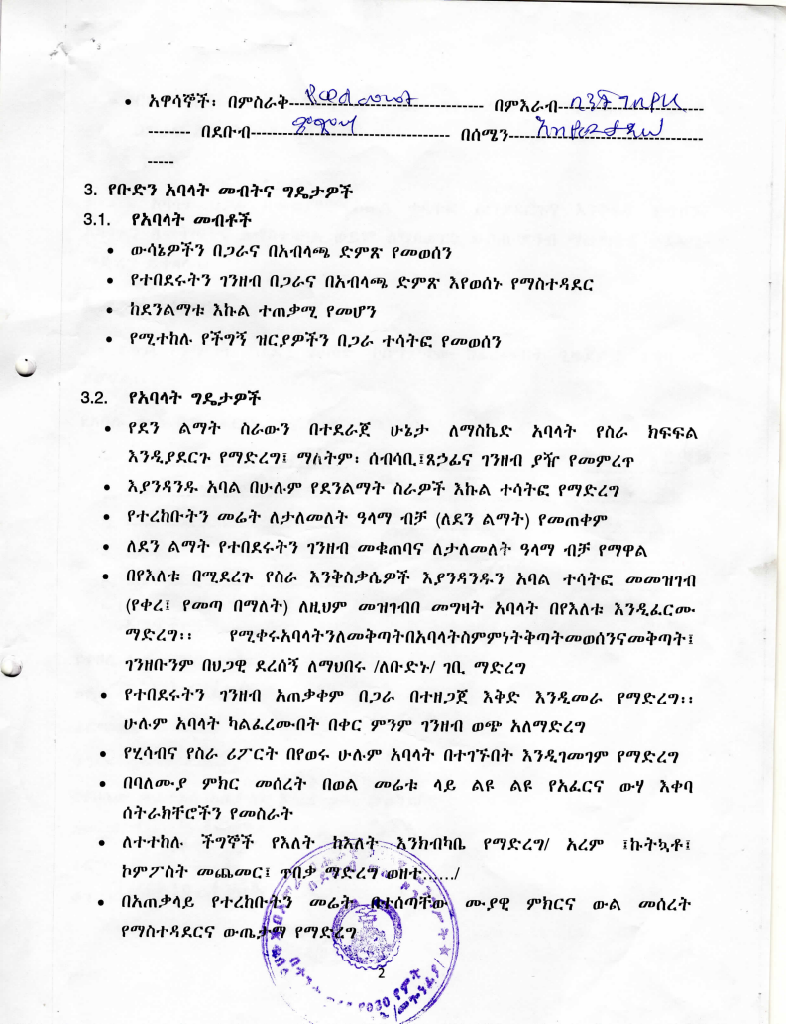 • አዋሳኞች፡ በምስራቅ---------------------------------- በምእራብ--------------------------
--------- በደቡብ---------------------------------- በሰሜን----------------------------------
-----
3. የቡድን አባላት መብትና ግዴታዎች
3.1. የአባላት መብቶች
• ውሳኔዎችን በጋራና በአብላጫ ድምጽ የመወሰን
• የተበደሩትን ገንዘብ በጋራና በአብላጫ ድምጽ እየወሰኑ የማስተዳደር
• ከደንልማቱ እኩል ተጠቃሚ የመሆን
• የሚተከሉ የችግኝ ዝርያዎችን በጋራ ተሳትፎ የመወሰን
3.2. የአባላት ግዴታዎች
• የደን ልማት ስራውን በተደራጀ ሁኔታ ለማስኬድ አባላት የስራ ክፍፍል
እንዲያደርጉ የማድረግ፤ ማለትም፡ ሰብሳቢ፤ጸኃፊና ገንዘብ ያዥ የመምረጥ
• እያንዳንዱ አባል በሁሉም የደንልማት ስራዎች እኩል ተሳትፎ የማድረግ
• የተረከቡትን መሬት ለታለመለት ዓላማ ብቻ (ለደን ልማት) የመጠቀም
• ለደን ልማት የተበደሩትን ገንዘብ መቁጠባና ለታለመለት ዓላማ ብቻ የማዋል
• በየእለቱ በሚደረጉ የስራ እንቅስቃሴዎች እያንዳንዱን አባል ተሳትፎ መመዝገብ
(የቀረ፤ የመጣ በማለት) ለዚህም መዝገብበ መግዛት አባላት በየእለቱ እንዲፈርሙ
ማድረግ፡፡ የሚቀሩአባላትንለመቅጣትበአባላትስምምነትቅጣትመወሰንናመቅጣት፤
ገንዘቡንም በህጋዊ ደረሰኝ ለማህበሩ /ለቡድኑ/ ገቢ ማድረግ
• የተበደሩትን ገንዘብ አጠቃቀም በጋራ በተዘጋጀ እቅድ እንዲመራ የማድረግ፡፡
ሁሉም አባላት ካልፈረሙበት በቀር ምንም ገንዘብ ወጭ አለማድረግ
• የሂሳብና የስራ ሪፖርት በየወሩ ሁሉም አባላት በተገኙበት እንዲገመገም የማድረግ
• በባለሙያ ምክር መሰረት በወል መሬቱ ላይ ልዩ ልዩ የአፈርና ውሃ እቀባ
ሰትራክቸሮችን የመስራት
• ለተተከሉ ችግኞች የእለት ከእለት እንክብካቤ የማድረግ/ አረም ፤ኩትኳቶ፤
ኮምፖስት መጨመር፤ ጥበቃ ማድረግ ወዘተ....../
• በአጠቃላይ የተረከቡትን መሬት በተሰጣቸው ሙያዊ ምክርና ውል መሰረት
የማስተዳደርና ውጤታማ የማድረግ
2